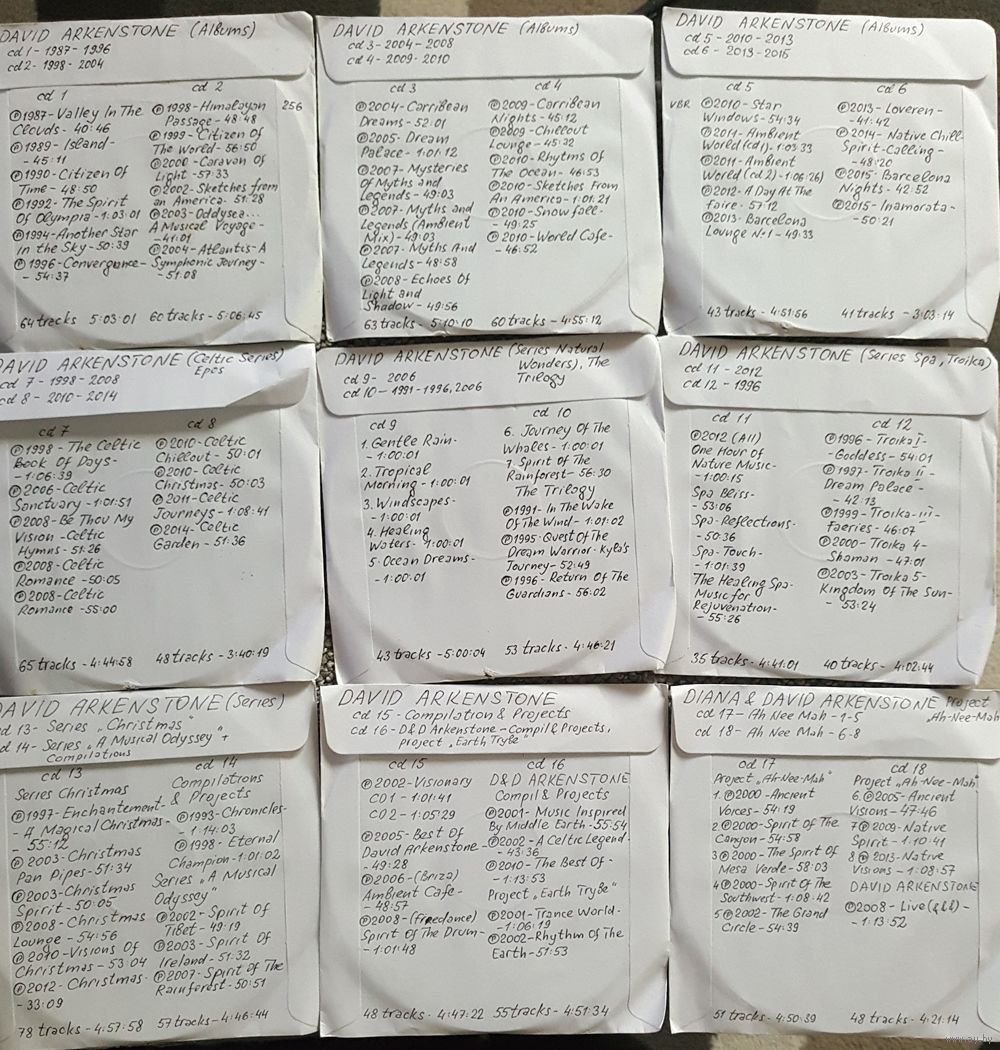 DAVID ARKENSTONE (Albums)
cd 1 - 1987 - 1996
cd 2 - 1998 - 2004
cd 1
℗1987 - Valley In The
Clouds - 40:46
℗1989 - Island -
- 45:11
℗1990 - Citizen Of
Time - 48:50
℗1992 - The Spirit
Of Olympia - 1:03:01
℗1994 - Another Star
In the Sky - 50:39
℗1996 - Convergence -
- 54:37
64 tracks 5:03:01
cd 2
℗1998 - Himalayan 256
Passage - 48:48
℗1999 - Citizen Of
The World - 56:50
℗2000 - Caravan Of
Light - 57:33
℗2002 - Sketches from
an America - 51:28
℗2003 - Oddysea...
A Musical Voyage -
- 41:01
℗2004 - Atlantis - A
Symphonic Journey -
- 51:08
60 tracks - 5:06:45
DAVID ARKENSTONE (Albums)
cd 3 - 2004 - 2008
cd 4 - 2009 - 2010
cd 3
℗2004 - Carribean
Dreams - 52:01
℗2005 - Dream
Palace - 1:01:12
℗2007 - Mysteries
Of Myths and
Legends - 49:03
℗2007 - Myths and
Legends (Ambient
Mix) - 49:03
℗2007 - Myths And
Legends - 48:58
℗2008 - Echoes Of
Light and
Shadow - 49:56
63 tracks - 5:10:10
cd 4
℗2009 - Carribean
Nights - 45:12
℗2009 - Chillout
Lounge - 45:32
℗2010 - Rhytms Of
The Ocean - 46:53
℗2010 - Sketches From
An America - 1:01:21
℗2010 - Snowfall -
- 49:25
℗2010 - World Cafe -
- 46:52
60 tracks - 4:55:12
DAVID ARKENSTONE (Albums)
cd 5 - 2010 - 2013
cd 6 - 2013 - 2015
cd 5
VBR ℗2010 - Star
Windows - 54:34
℗2011 - Ambient
World (cd 1) - 1:03:33
℗2011 - Ambient
World (cd 2) - 1:06:26)
℗2012 - A Day At The
faire - 57:12
℗2013 - Barcelona
Lounge №1 - 49:33
43 tracks - 4:51:56
cd 6
℗2013 - Loveren -
- 41:42
℗2014 - Native Chill -
Spirit - Calling -
- 48:20
℗2015 - Barcelona
Nights - 42:52
℗2015 - Inamorata -
- 50:21
41 tracks - 3:03:14
DAVID ARKENSTONE (Celtic Series)
Epos
cd 7 - 1998 - 2008
cd 8 - 2010 - 2014
cd 7
℗1998 - The Celtic
Book Of Days -
- 1:06:39
℗2006 - Celtic
Sanctuary - 1:01:51
℗2008 - Be Thou My
Vision - Celtic
Hymns - 51:26
℗2008 - Celtic
Romance - 50:05
℗2008 - Celtic
Romance - 55:00
65 tracks - 4:44:58
cd 8
℗2010 - Celtic
Chillout - 50:01
℗2010 - Celtic
Christmas - 50:03
℗2011 - Celtic
Journeys - 1:08:41
℗2014 - Celtic
Garden - 51:36
48 tracks - 3:40:19
DAVID ARKENSTONE (Series Natural
Wonders), The
Trilogy
cd 9 - 2006
cd 10 - 1991 - 1996, 2006
cd 9
1. Gentle Rain -
- 1:00:01
2. Tropical
Morning - 1:00:01
3. Windscapes -
- 1:00:01
4. Healing
Waters - 1:00:01
5. Ocean Dreams -
- 1:00:01
43 tracks - 5:00:04
cd 10
6. Journey Of The
Whales - 1:00:01
7. Spirit Of The
Rainforest - 56:30
The Trilogy
℗1991 - In The Wake
Of The Wind - 1:01:02
℗1995 - Quest Of The
Dream Warrior - Kyla's
Journey - 52:49
℗1996 - Return Of The
Guardians - 56:02
53 tracks - 4:46:21
DAVID ARKENSTONE (Series Spa, Troika)
cd 11 - 2012
cd 12 - 1996
cd 11
℗2012 (All)
One Hour of
Nature Music -
- 1:00:15
Spa Bliss -
- 53:06
Spa - Reflections -
- 50:36
Spa - Touch -
- 1:01:39
The Healing Spa -
Music for
Rejuvenation -
- 55:26
35 tracks - 4:41:01
cd 12
℗1996 - Troika I -
- Goddess - 54:01
℗1997 - Troika II -
Dream Palace -
- 42:13
℗1999 - Troika - III -
Faeries - 46:07
℗2000 - Troika 4 -
Shaman - 47:01
℗2003 - Troika 5 -
Kingdom Of The Sun -
- 53:24
40 tracks - 4:02:44
DAVID ARKENSTONE (Series)
cd 13 - Series „Christmas"
cd 14 - Series „A Musical Odyssey" +
Compilations
cd 13
Series Christmas
℗1997 - Enchantement -
- A Magical Christmas -
- 55:12
℗2003 - Christmas
Pan Pipes - 51:34
℗2003 - Christmas
Spirit - 50:05
℗2008 - Christmas
Lounge - 54:56
℗2010 - Visions Of
Christmas - 53:04
℗2012 - Christmas -
- 33:09
78 tracks - 4:57:58
cd 14
Compilations
& Projects
℗1993 - Chronicles -
- 1:14:03
℗1998 - Eternal
Champion - 1:01:02
Series „A Musical
Odyssey"
℗2002 - Spirit Of
Tibet - 49:19
℗2003 - Spirit Of
Ireland - 51:32
℗2007 - Spirit Of The
Rainforest - 50:51
57 tracks - 4:46:44
DAVID ARKENSTONE
cd 15 - Compilation & Projects
cd 16 - D&D Arkenstone - Compil & Projects,
project „Earth Trybe"
cd 15
℗2002 - Visionary
CD 1 - 1:01:41
CD 2 - 1:05:29
℗2005 - Best Of
David Arkenstone -
- 49:28
℗2006 - (Briza)
Ambient Cafe -
- 48:57
℗2008 - (freedance)
Spirit Of The Drum -
- 1:01:48
48 tracks - 4:47:22
cd 16
D&D ARKENSTONE
Compil & Projects
℗2001 - Music Inspired
By Middle Earth - 55:54
℗2002 - A Celtic Legend -
- 43:36
℗2010 - The Best Of -
- 1:13:53
Project „Earth Trybe"
℗2001 - Trance World -
- 1:06:19
℗2002 - Rhythm Of The
Earth - 51:53
55 tracks - 4:51:34
DIANA & DAVID ARKENSTONE Project
„Ah-Nee-Mah"
cd 17 - Ah Nee Mah - 1-5
cd 18 - Ah Nee Mah - 6-8
cd 17
Project „Ah-Nee-Mah"
1. ℗2000 - Ancient
Voices - 54:19
2 ℗2000 - Spirit Of The
Canyon - 54:58
3 ℗2000 - The Spirit Of
Mesa Verde - 58:03
4 ℗2000 - Spirit Of The
Southwest - 1:08:42
5 ℗2002 - The Grand
Circle - 54:39
51 tracks - 4:50:39
cd 18
Project „Ah-Nee-Mah"
6. ℗2005 - Ancient
Visions - 47:46
7 ℗2009 - Native
Spirit - 1:10:41
8 ℗2013 - Native
Visions - 1:08:57
DAVID ARKENSTONE
℗2008 - Live
- 1:13:52
48 tracks - 4:21:14